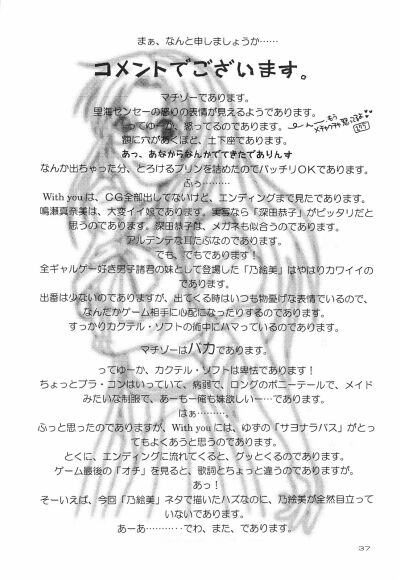 まぁ、なんと申しましょうか……
コメントでございます。
マチゾーであります。
里海センセーの怒りの表情が見えるようであります。
ってゆーか、怒ってるのであります。
もう
メチャクチャ怒ってるよ
額に穴があくほど、土下座であります。
あっ、あながらなんかでてきたでありんす
なんか出ちゃった分、とろけるプリンを詰めたのでバッチリOKであります。
ふぅ………
With youは、CG全部出してないけど、エンディングまで見たであります。
鳴瀬真奈美は、大変イイ娘であります。実写なら「深田恭子」がピッタリだと
思うのであります。深田恭子は、メガネも似合うのであります。
アルデンテな耳たぶなのであります。
でも、でもであります！
全ギャルゲー好き男子諸君の妹として登場した「乃絵美」はやはりカワイイの
であります。
出番は少ないのでありますが、出てくる時はいつも物憂げな表情でいるので、
なんだかゲーム相手に心配になったりするのであります。
すっかりカクテル・ソフトの術中にハマっているのであります。
マチゾーはバカであります。
ってゆーか、カクテル・ソフトは卑怯であります！
ちょっとブラ・コンはいっていて、病弱で、ロングのポニーテールで、メイド
みたいな制服で、あーもー俺も妹欲しいー…であります。
はぁ………。
ふっと思ったのでありますが、With youには、ゆずの「サヨナラバス」がとっ
てもよくあうと思うのであります。
とくに、エンディングに流れてくると、グッとくるのであります。
ゲーム最後の「オチ」を見ると、歌詞とちょっと違うのでありますが。
あっ！
そーいえば、今回「乃絵美」ネタで描いたハズなのに、乃絵美が全然目立って
いないであります。
あーあ…………でわ、また、であります。
37